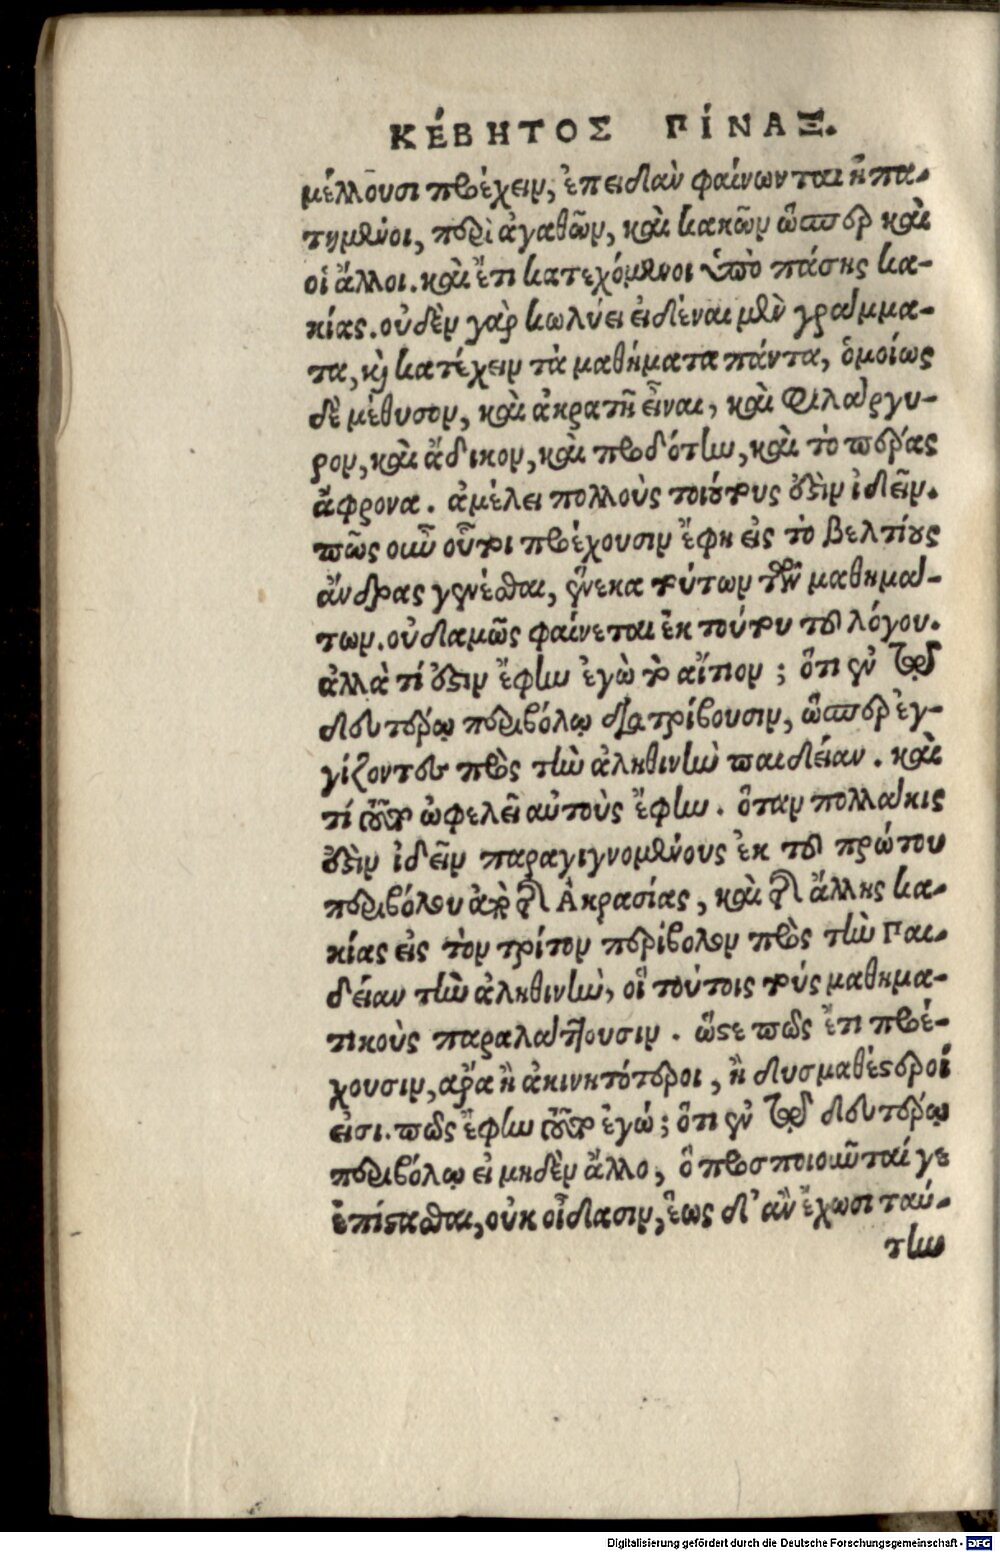 ΚΈΒΗΤΟΣ ΠΊΝΑΞ.
μέλλουσι προέχειν, ἐπειδὰν φαίνωνται ἠπα-
τημένοι, περὶ ἀγαθῶν, καὶ κακῶν ὥσπερ καὶ
οἱ ἄλλοι. καὶ ἔτι κατεχόμενοι ὑπὸ πάσης κα-
κίας. οὐδὲν γὰρ κωλύει εἰδέναι μὲν γράμμα-
τα, καὶ κατέχειν τὰ μαθήματα πάντα, ὁμοίως
δὲ μέθυσον, καὶ ἀκρατῆ εἶναι, καὶ φιλάργυ-
ρον, καὶ ἄδικον, καὶ προδότην, καὶ τὸ πέρας
ἄφρονα. ἀμέλει πολλοὺς τοιούτους ἔστιν ἰδεῖν.
πῶς οὖν οὗτοι προέχουσιν ἔφη εἰς τὸ βελτίους
ἄνδρας γενέσθαι, ἕνεκα τούτων τῶν μαθημά-
των. οὐδαμῶς φαίνεται ἐκ τούτου τοῦ λόγου.
ἀλλὰ τί ἔστιν ἔφην ἐγὼ τὸ αἴτιον; ὅτι ἐν τῷ
δευτέρῳ περιβόλῳ διατρίβουσιν, ὥσπερ ἐγ-
γίζοντες πρὸς τὴν ἀληθινὴν παιδείαν. καὶ
τί τοῦτο ὠφελεῖ αὐτοὺς ἔφην. ὅταν πολλάκις
ἔστιν ἰδεῖν παραγιγνομένους ἐκ τοῦ πρώτου
περιβόλου ἀπὸ τῆς Ἀκρασίας, καὶ τῆς ἄλλης κα-
κίας εἰς τὸν τρίτον περίβολον πρὸς τὴν Παι-
δείαν τὴν ἀληθινὴν, οἳ τούτοις τοὺς μαθημα-
τικοὺς παραλάττουσιν. ὥστε πῶς ἔτι προέ-
χουσιν, ἄρα ἢ ἀκινητότεροι, ἢ δυσμαθέστεροί
εἰσι. πῶς ἔφην τοῦτο ἐγώ; ὅτι ἐν τῷ δευτέρῳ
περιβόλῳ εἰ μηδὲν ἄλλο, ὃ προσποιοῦνταί γε
ἐπίστασθαι, οὐκ οἴδασιν, ἕως δ' ἂν ἔχωσι ταύ-
την
Digitalisierung gefördert durch die Deutsche Forschungsgemeinschaft - DFG